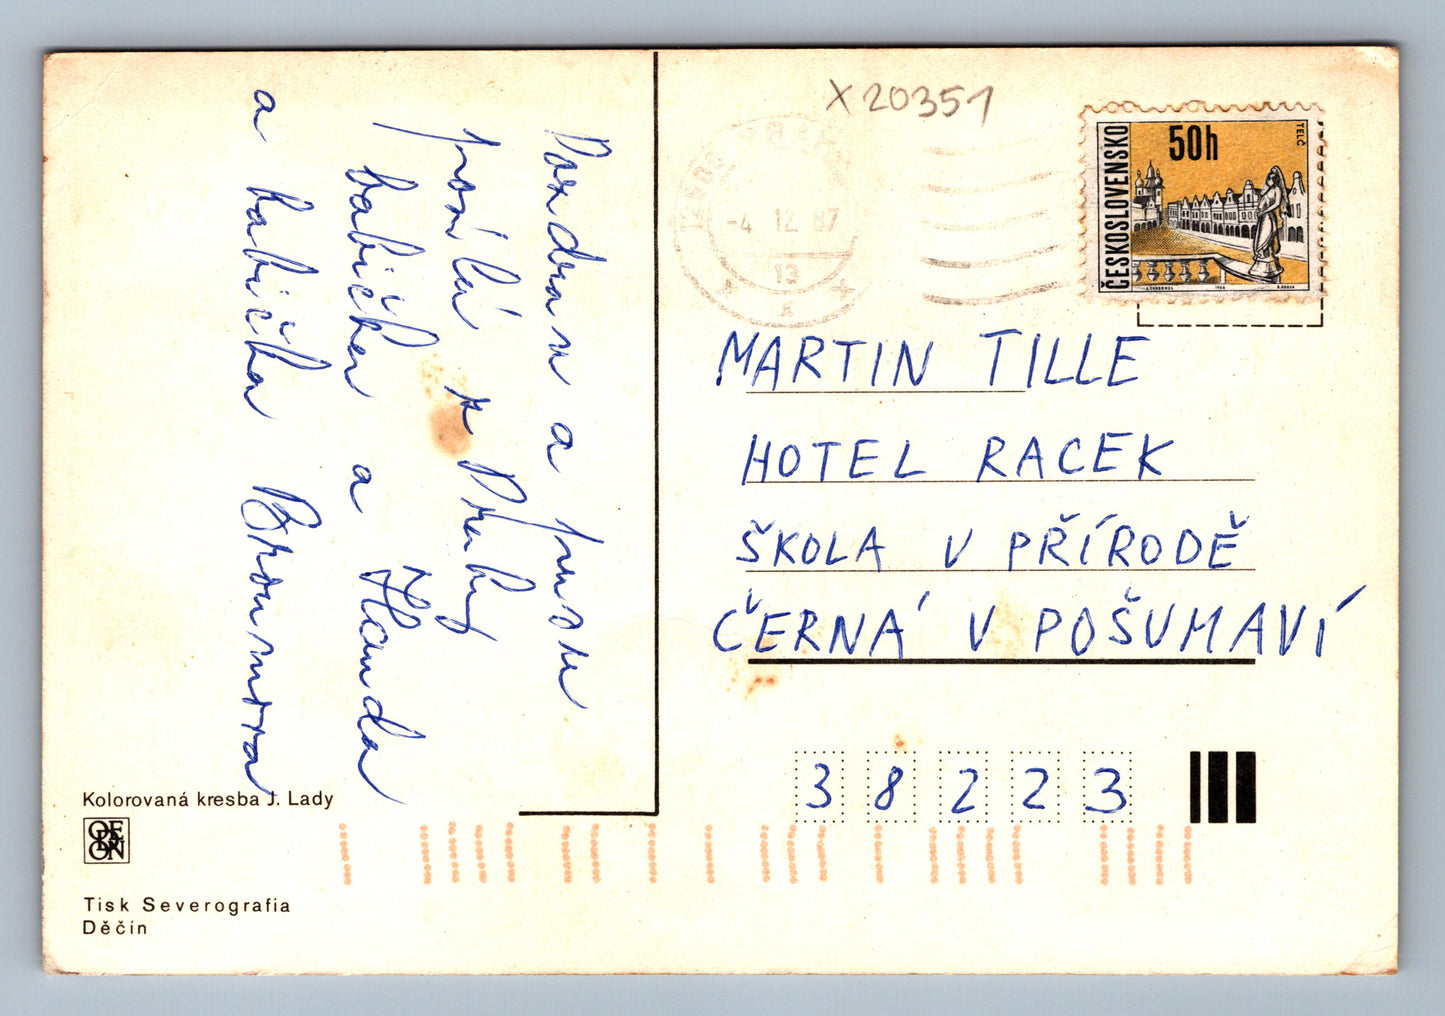 X20351
ČESKOSLOVENSKO
50h
TELČ
-4. 12. 87
13
MARTIN TILLE
HOTEL RACEK
ŠKOLA V PŘÍRODĚ
ČERNÁ V POŠUMAVÍ
38223
Pozdrav a pusu
posílá z Prahy
babička a Handa
a babička
Kolorovaná kresba J. Lady
ORBIS
Tisk Severografia
Děčín